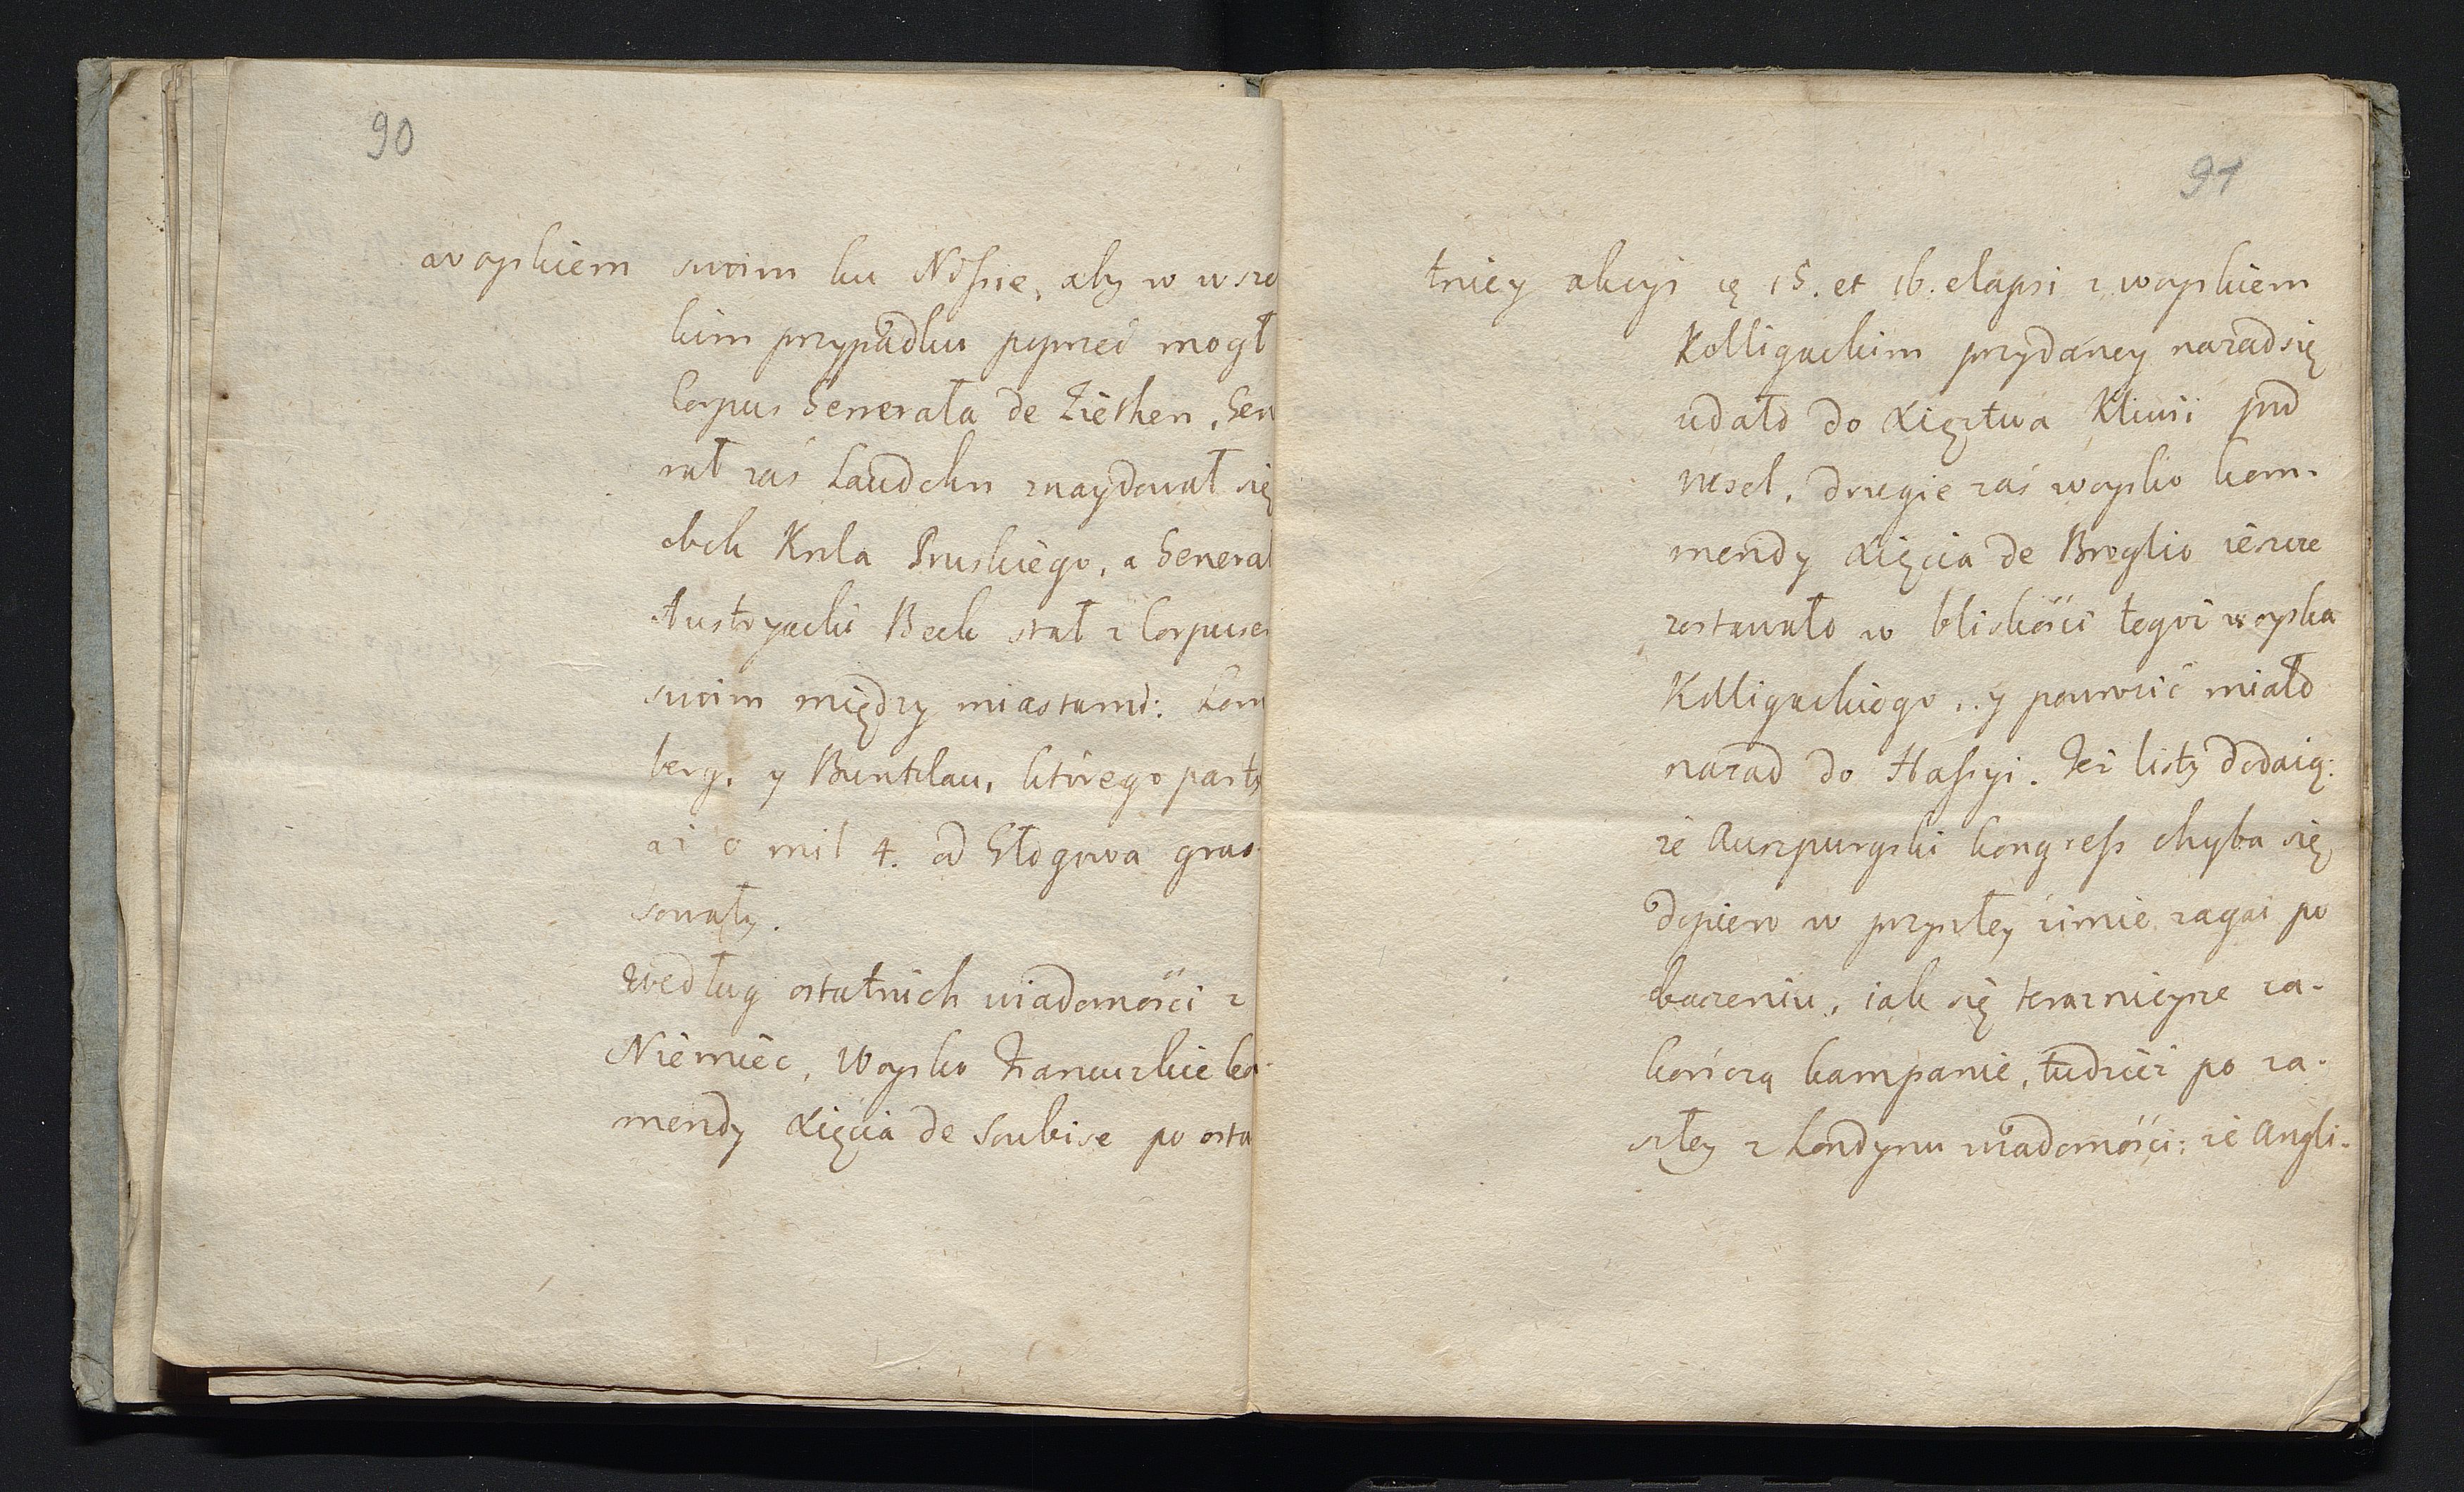 90
woyskiem swoim ku Nissie, aby w wsze
kim przypadku poprzeć mogł
Corpus Generała de Ziethen, Gen
rał zaś Laudohn znaydował się
obok Krola Pruskiego, a General
Austryacki Beck stał z Corpuse
swoim między miastami: Lem
berg, y Buntzlau, ktorego party
aż o mil 4. od Głogowa gras-
sowały.
Według ostatnich wiadomości z
Niemiec, Woysko Francuzkie ko-
mendy Xięcia de Soubise po osta
91
tniey akcyi 15. et 16. elapsi z woyskiem
Kolligackim przydaney nazad się
udało do Xięztwa Kliwii pod
Wesel, drugie zaś woysko kom-
mendy Xięcia de Broglio ieszcze
zostawało w bliskości tegoż woyska
Kolligackiego, y powrocić miało
nazad do Hassyi. Też listy dodaią:
że Auszpurgski kongress chyba się
dopiero w przyszłey zimie zagai po
baczeniu, iak się teraznieysze za-
kończą kampanie, tudzież po za-
szłey z Londynu wiadomości: że Angli-